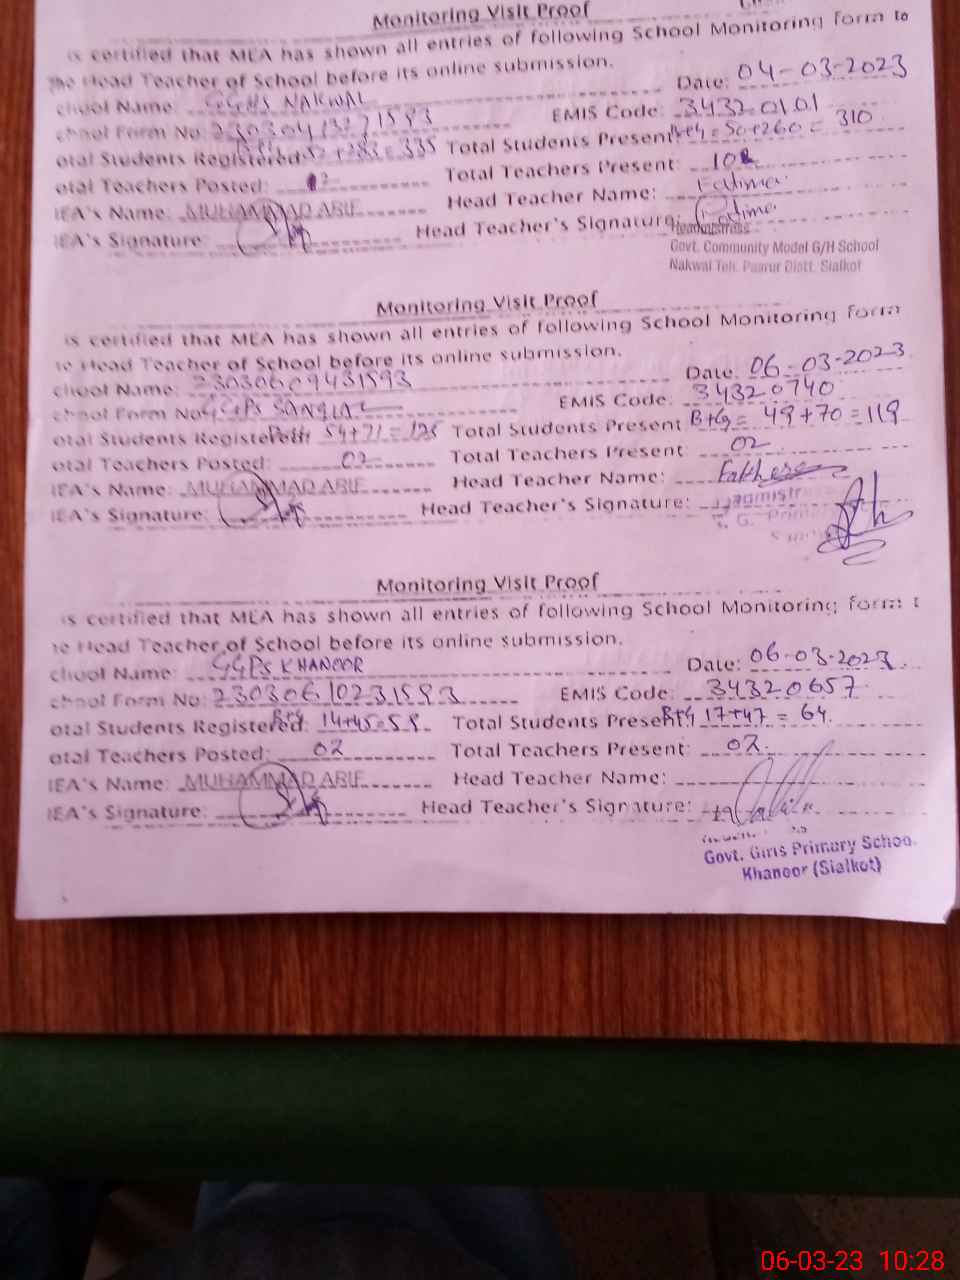 Monitoring Visit Proof
is certified that MEA has shown all entries of following School Monitoring form to
Head Teacher of School before its online submission.
Date: 04-03-2023
chool Name: GGHS NAKWAL
EMIS Code: 34320101
chool Form No: 
otal Students Registered: +283=335 Total Students Present: B+G = 50+260 = 310
otal Teachers Posted: Total Teachers Present:
MEA's Name: MUHAMMAD ARIF Head Teacher Name: Fatima
MEA's Signature: Head Teacher's Signature: Fatima
Headmistress
Govt. Community Model G/H School
Nakwal Teh. Pasrur Distt. Sialkot
Monitoring Visit Proof
is certified that MEA has shown all entries of following School Monitoring form
Head Teacher of School before its online submission.
Date: 06-03-2023
chool Name: 23030609431593
EMIS Code: 34320740
chool Form No: GGPS SANGIAL
otal Students Registered: 54+71=125 Total Students Present B+G= 49+70=119
otal Teachers Posted: 02 Total Teachers Present: 02
IEA's Name: MUHAMMAD ARIF Head Teacher Name:
IEA's Signature: Head Teacher's Signature:
Monitoring Visit Proof
is certified that MEA has shown all entries of following School Monitoring form t
Head Teacher of School before its online submission.
chool Name: GGPS KHANOOR Date: 06-03-2023
chool Form No: 23030610231593 EMIS Code: 34320657
otal Students Registered: B+G 14+45=59 Total Students Present: B+G 17+47 = 64
otal Teachers Posted: 02 Total Teachers Present: 02
IEA's Name: MUHAMMAD ARIF Head Teacher Name:
IEA's Signature: Head Teacher's Signature:
Govt. Girls Primary Schoo
Khanoor (Sialkot)
06-03-23 10:28